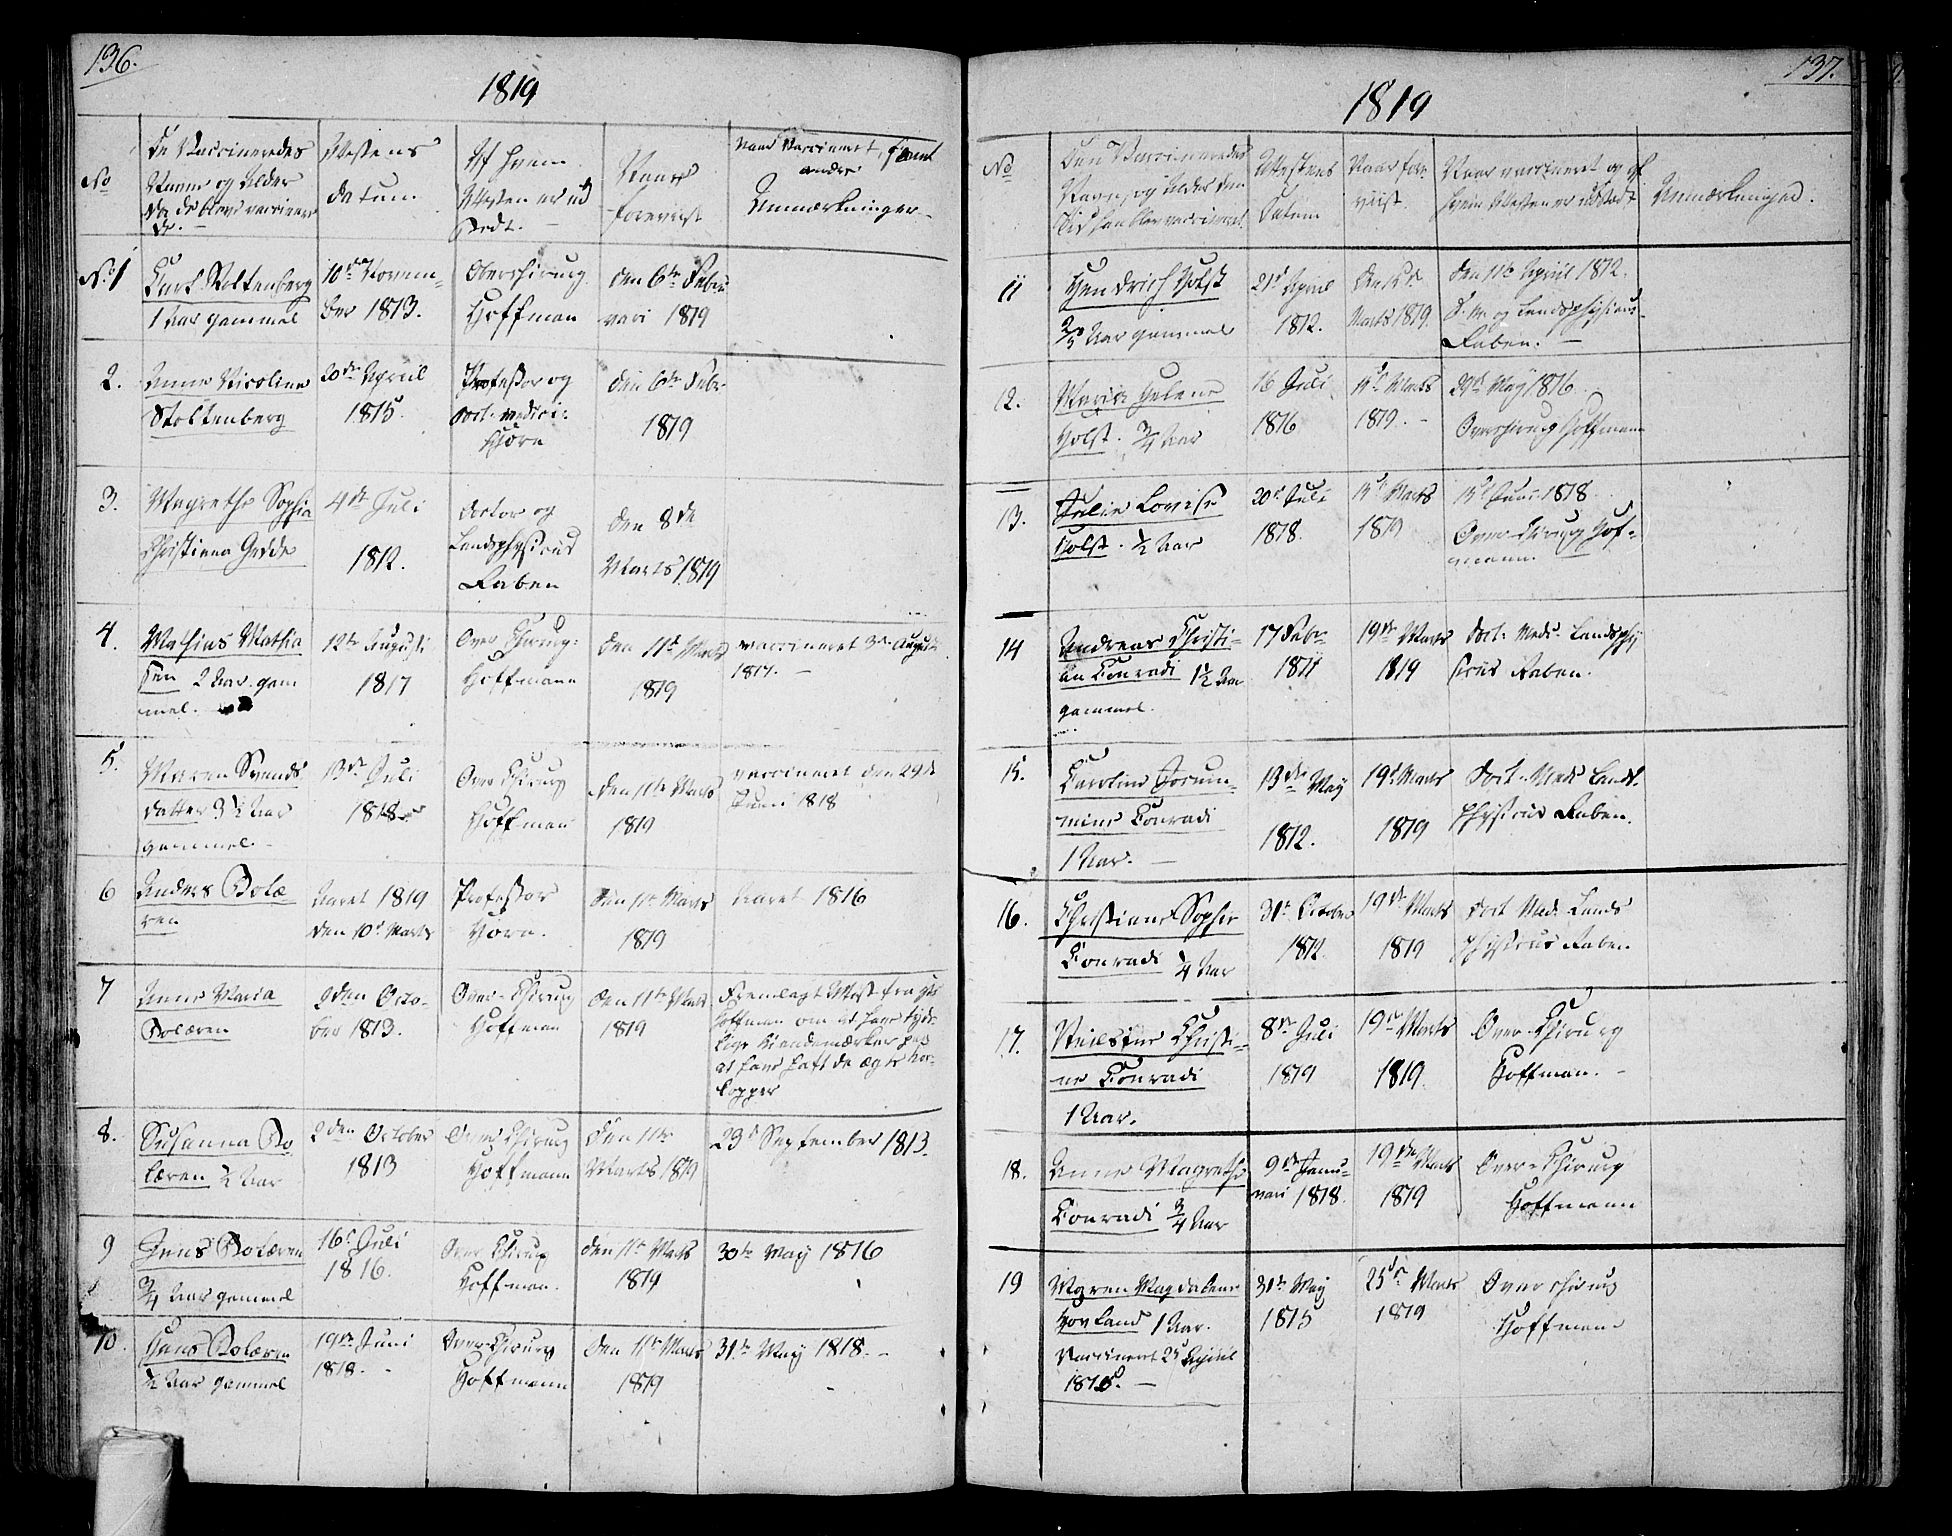 136.
1819
No
De Vaccineredes
Navne og Alder
da de bleve vaccinere
de. –
Attestens
datum.
Af hvem
Attesten er ud
stedt. –
Naar
foreviist
naar Vaccineret, samt
andre
Anmærkninger –
No 1
Carl Stoltenberg
1 Aar gammel
10de Novem-
ber 1813.
Oberchirurg
Hoffman
den 6te Febru
vari 1819
2.
Anne Nicoline
Stoltenberg
20de April
1815
Professor og
Doct. Medici:
Thorn
den 6te Febr
1819
3.
Magrethe Sophia
Christiana Gedde
4de Juli
1812.
Doctor og
Landphysicus
Raben
den 8de
Marts 1819
4.
Mathias Mathia
sen 2 Aar gam
mel.
12te Augusti
1817
Over Chirurg:
Hoffmann
den 11te Marts
1819
vaccineret 3de August
1817. –
5.
Maren Svends
datter 3 ½ Aar
gammel. –
13de Juli
1818
Over Chirurg
Hoffman
den 11te Marts
1819
vaccineret den 29de
Juni 1818
6
Anders Bolæ
ren
Aaret 1819
den 10de Marts
Professor
Horn.
den 11te Marts
1819
Aaret 1816
7
Anne Maria
Bolæren
2den Octo-
ber 1813.
Over-Chirurg
Hoffman
den 11te Marts
1819
Fremlagt Attest fra
Hoffman om at have tyde
lige Kiendemærker paa
at have haft de ægte Ko-
kopper
8.
Susanna Bo
læren ½ Aar
2den October
1813
Over Chirurg
Hoffmann
den 11te
Marts 1819
23de September 1813.
9
Jens Bolæren
¾ Aar gammel
16de Juli
1816.
Over Chirurg
Hoffman.
den 11te Marts
1819
30te May 1816
10.
Hans Bolæren
½ Aar gammel
19de Juni
1818. –
Over-Chirurg
Hoffmann
den 11te Marts
1819
31te May 1818. –
137.
1819
No
Den Vaccineredes
Navne, og Alder den
Tid han blev vaccineret
Attestens
Datum
Naar fore
viist.
Naar vaccineret og af
hvem Attesten er udstedt
Anmærkninger.
11
Hendrich Holst
⅔ Aar gammel
21de April
1812.
Marts 1819.
den 11te April 1812.
D. M. og Landphysicus
Raben. –
12.
Marie Helene
Holst. ¾ Aar
16 Juli
1816
15de Marts
1819. –
29de May 1816
Overchirurg Hoffmann
13.
Julie Lovise
Holst. ½ Aar
20de Juli
1818.
15de Marts
1819
15de Juni 1818
Over Chirurg Hof-
mann.
14
Andreas Christi-
an Conradi 1½ Aar
gammel.
17 Febr
1811
19de Marts
1819
Doct. Med. Landphy
sicus Raben.
15.
Caroline Jorum-
mine Conradi
1 Aar. –
13de May
1812.
19de Marts
1819
Doct. Med. Land
Physicus Raben.
16.
Christiane Sophie
Conradi ¼ Aar
31te October
1812.
19de Marts
1819
Doct Med. Lands
Physicus Raben
17.
Christi-
ne Conradi
1 Aar.
8de Juli
1819
19de Marts
1819.
Over-Chirurg
Hoffman. –
18.
Anne Magrethe
Conradi ¾ Aar
9de Janu-
vari 1818.
19de Marts
1819
Over-Chirurg
Hoffmann
19
Maren Magdalene
Hovland 1 Aar.
Vaccineret 25de April
1815. –
31te May
1815
25de Marts
1819
Over chirurg
Hoffmann